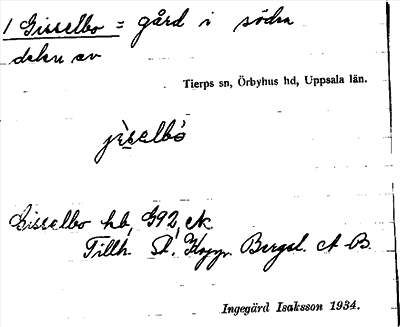 1 Gisselbo = gård i södra
delen av
Tierps sn, Örbyhus hd, Uppsala län.
jìselbó
Gisselbo hb, G92, ek
Tillh. St. Koppr. Bergsl. A-B.
Ingegärd Isaksson 1934.